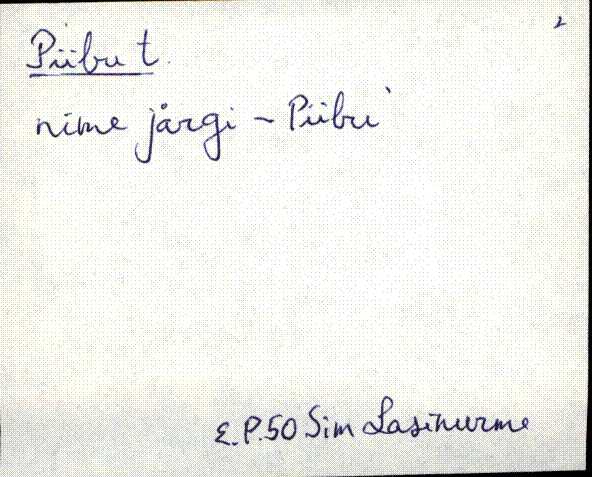 2
Piibu t.
nime järgi - Piibu`
E.P.50 Sim Lasinurme